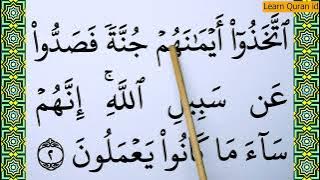 Learn Quran id
ٱتَّخَذُوٓا۟ أَيۡمَٰنَهُمۡ جُنَّةٗ فَصَدُّوا۟
عَن سَبِيلِ ٱللَّهِۚ إِنَّهُمۡ
سَآءَ مَا كَانُوا۟ يَعۡمَلُونَ ٢